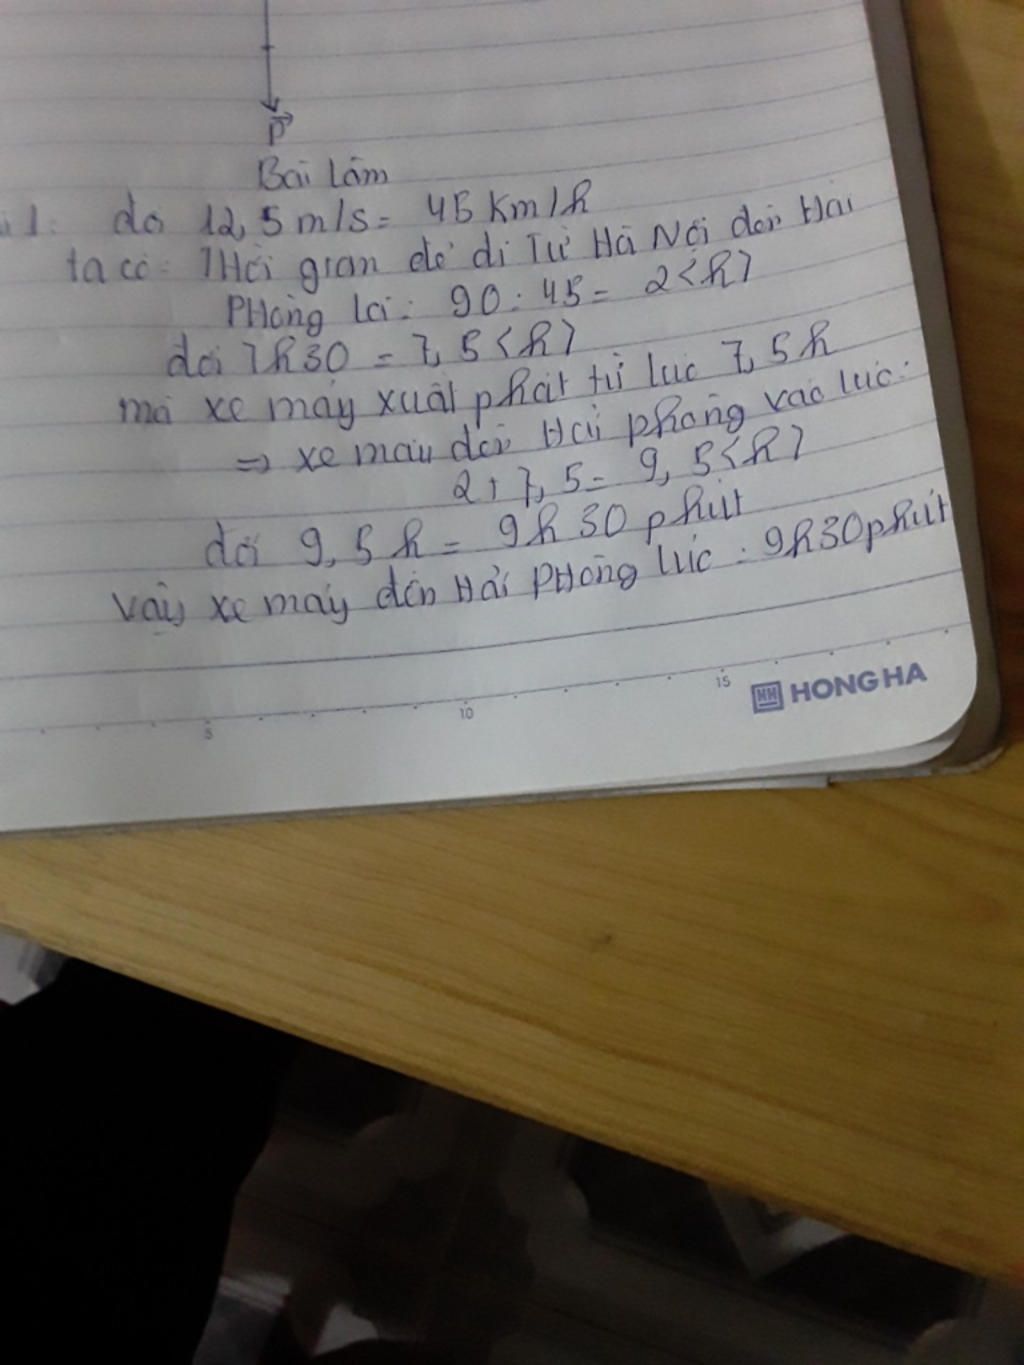 P
Bài Làm
đổi 12,5 m/s = 45 Km/h
ta có: THời gian để đi Từ Hà Nội đến Hải
PHòng là: 90 : 45 = 2 <h>
đổi 7h30 = 7,5 <h>
mà xe máy xuất phát từ lúc 7,5h
=> xe máy đến Hải phòng vào lúc:
2 + 7,5 = 9,5 <h>
đổi 9,5h = 9h30 phút
vậy xe máy đến Hải PHòng lúc : 9h30phút
5 10 15
HH HONG HA